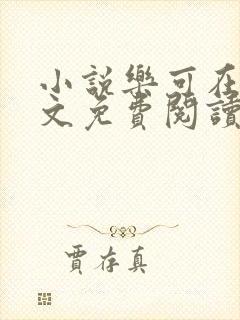 小說樂可在
文免費閱讀
賈存真